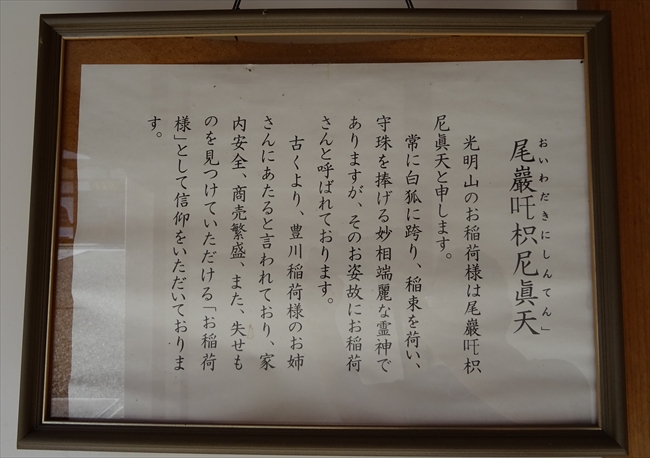 おいわだきにしんてん」
尾巖吒枳尼眞天
光明山のお稲荷様は尾巖吒枳
尼眞天と申します。
常に白狐に跨り、稲束を荷い、
守珠を捧げる妙相端麗な霊神で
ありますが、そのお姿故にお稲荷
さんと呼ばれております。
古くより、豊川稲荷様のお姉
さんにあたると言われており、家
内安全、商売繁盛、また、失せも
のを見つけていただける「お稲荷
様」として信仰をいただいておりま
す。